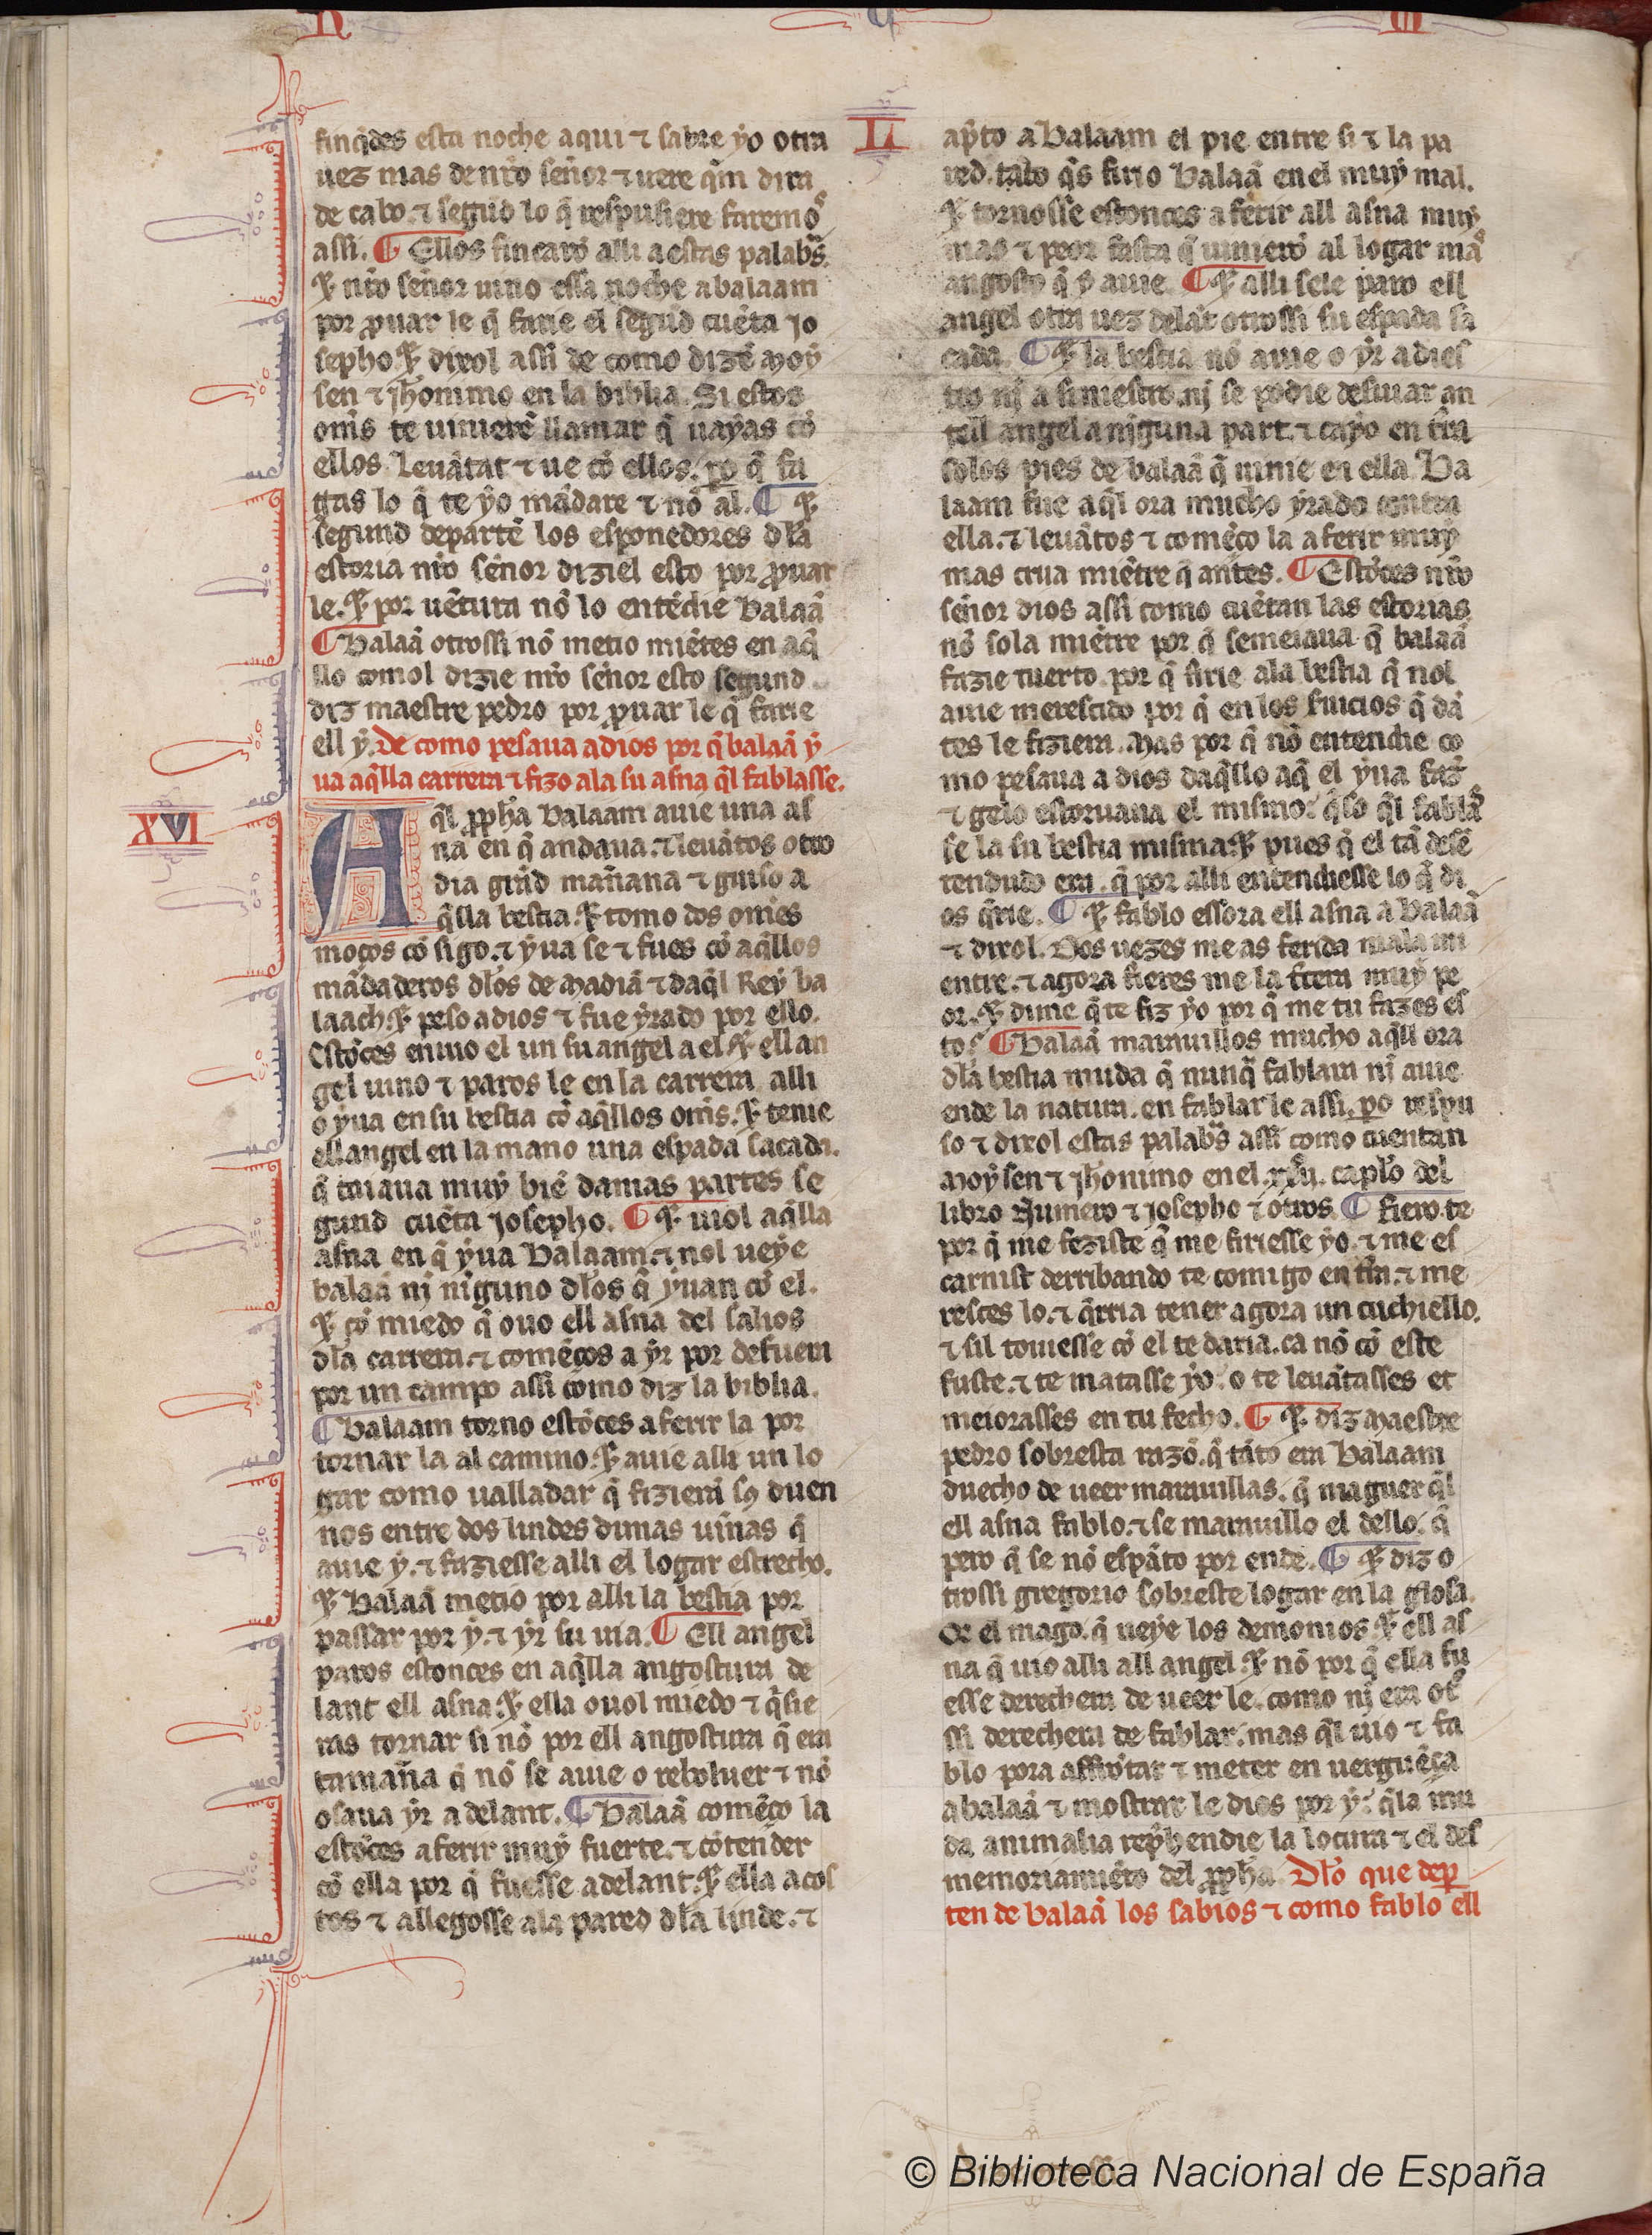 finq̃des esta noche aqui ⁊ sabre yo otra
uez mas de nr̃o señor ⁊ uere q̃m dira
de cabo. ⁊ segũd lo q̃ respusiere faremos
assi. ¶ Ellos fincarõ alli a estas palabras.
⁊ nr̃o señor uino essa noche a balaam
por prouar le q̃ farie el segũd cuẽta jo
sepho. ⁊ dixol assi de como dizẽ moy
sen ⁊ jh̃onimo en la biblia. Si estos
om̃s te uinierẽ llamar q̃ uayas cõ
ellos. Leuãtat ⁊ ue cõ ellos. ꝑo q̃ fa
gas lo q̃ te yo mãdare ⁊ nõ al. ¶ ⁊
segund departẽ los esponedores dła
estoria nr̃o señor diziel esto por prouar
le. ⁊ por uẽtura nõ lo entẽdie Balaã
¶ Balaã otrossi nõ metio miẽtes en aq̃
llo comol dizie nr̃o señor esto segund
diz maestre pedro por prouar le q̃ farie
ell y. De como pesaua a dios por q̃ balaã y
ua aq̃lla carrera ⁊ fizo ala su asna q̃l fablasse.
XVI
Aq̃l ꝓph̃a Balaam auie una as
na en q̃ andaua. ⁊ leuãtos otro
dia grãd mañana ⁊ guiso a
q̃lla bestia. ⁊ tomo dos omẽs
moços cõ sigo. ⁊ yua se ⁊ fues cõ aq̃llos
mãdaderos dłos de madiã ⁊ daq̃l Rey ba
laach. ⁊ peso a dios ⁊ fue yrado por ello.
Estõces enuio el un su angel a el. ⁊ ell an
gel uino ⁊ paros le en la carrera alli
o yua en su bestia cõ aq̃llos om̃s. ⁊ tenie
ell angel en la mano una espada sacada.
q̃ taiaua muy biẽ damas partes se
gund cuẽta josepho. ¶ ⁊ uiol aq̃lla
asna en q̃ yua Balaam. ⁊ nol ueye
balaã nj ninguno dłos q̃ yuan cõ el.
⁊ cõ miedo q̃ ouo ell asna del salios
dła carrera. ⁊ comẽços a yr por defuera
por un campo assi como diz la biblia.
¶ Balaam torno estõces a ferir la por
tornar la al camino. ⁊ auie alli un lo
gar como ualladar q̃ fizierã sꝯ duen
nos entre dos lindes dunas uinas q̃
auie y. ⁊ faziesse alli el logar estrecho.
⁊ Balaã metio por alli la bestia por
passar por y. ⁊ yr su uia. ¶ Ell angel
paros estonces en aq̃lla angostura de
lant ell asna. ⁊ ella ouol miedo ⁊ q̃sie
ras tornar si nõ por ell angostura q̃ era
tamaña q̃ nõ se auie o reboluer ⁊ nõ
osaua yr a delant. ¶ Balaã comẽço la
estõces a ferir muy fuerte. ⁊ cõtender
cõ ella por q̃ fuesse adelant. ⁊ ella acos
tos ⁊ allegosse ala pared dła linde. ⁊
L
ap̃to a Balaam el pie entre si ⁊ la pa
red. tãto q̃s firio Balaã en el muy mal.
⁊ tornosse estonces a ferir all asna muy
mas ⁊ peor fasta q̃ uinierõ al logar mas
angosto q̃ y auie. ¶ ⁊ alli sele paro ell
angel otra uez delãt otrossi su espada sa
cada. ¶ ⁊ la bestia nõ auie o yr a dies
tro nj a siniestro. nj se podie desuiar an
tell angel a njguna part. ⁊ cayo en tr̃ra
solos pies de balaã q̃ uinie en ella. Ba
laam fue aq̃l ora mucho yrado contra
ella. ⁊ leuãtos ⁊ comẽço la a ferir muy
mas crua miẽtre q̃ antes. ¶ Estõces nr̃o
señor dios assi como cuẽtan las estorias
nõ sola miẽtre por q̃ semeiaua q̃ balaã
fazie tuerto por q̃ firie ala bestia q̃ nol
auie merescido por q̃ en los seruicios q̃ dã
tes le fiziera. Mas por q̃ nõ entendie co
mo pesaua a dios daq̃llo aq̃ el yua fazer
⁊ gelo estoruaua el mismo: q̃so q̃l fablas
se la su bestia misma. ⁊ pues q̃ el tã desẽ
tendudo era. q̃ por alli entendiesse lo q̃ di
os q̃rie. ¶ ⁊ fablo essora ell asna a Balaã
⁊ dixol. Dos uezes me as ferida mala mi
entre. ⁊ agora fieres me la tercera muy pe
or. ⁊ dime q̃te fiz yo por q̃ me tu fazes es
to. ¶ Balaã marauillos mucho aq̃ll ora
dła bestia muda q̃ nunq̃ fablara nj auie
ende la natura. en fablar le assi. ꝑo respu
so ⁊ dixol estas palabras assi como cuentan
Moysen ⁊ jh̃onimo en el. capło del
libro Numero ⁊ josepho ⁊ otros. ¶ Fiero te
por q̃ me feziste q̃ me firiesse yo. ⁊ me es
carnist derribando te comigo en tr̃ra. ⁊ me
resces lo. ⁊ q̃rria tener agora un cuchiello.
⁊ sil touiesse cõ el te daria. ca nõ cõ este
fuste. ⁊ te matasse yo: o te leuãtasses et
meiorasses en tu fecho. ¶ ⁊ diz Maestre
pedro sobresta razõ. q̃ tãto era Balaam
duecho de ueer marauillas. q̃ maguer q̃l
ell asna fablo. ⁊ se marauillo el dello. q̃
pero q̃ se nõ espãto por ende. ¶ ⁊ diz o
trossi gregorio sobreste logar en la glosa.
Or el mago. q̃ ueye los demonios. ⁊ ell as
na q̃ uio alli all angel. ⁊ nõ por q̃ ella fu
esse derechera de ueer le. como nj era ot̃
ssi derechera de fablar. mas q̃l uio ⁊ fa
blo pora affrõtar ⁊ meter en uerguẽça
a balaã ⁊ mostrar le dios por y: q̃la mu
da animalia rep̃hendie la locura ⁊ el des
memoriamiẽto del ꝓph̃a. Dło que depar
ten de balaã los sabios ⁊ como fablo ell
© Biblioteca Nacional de España